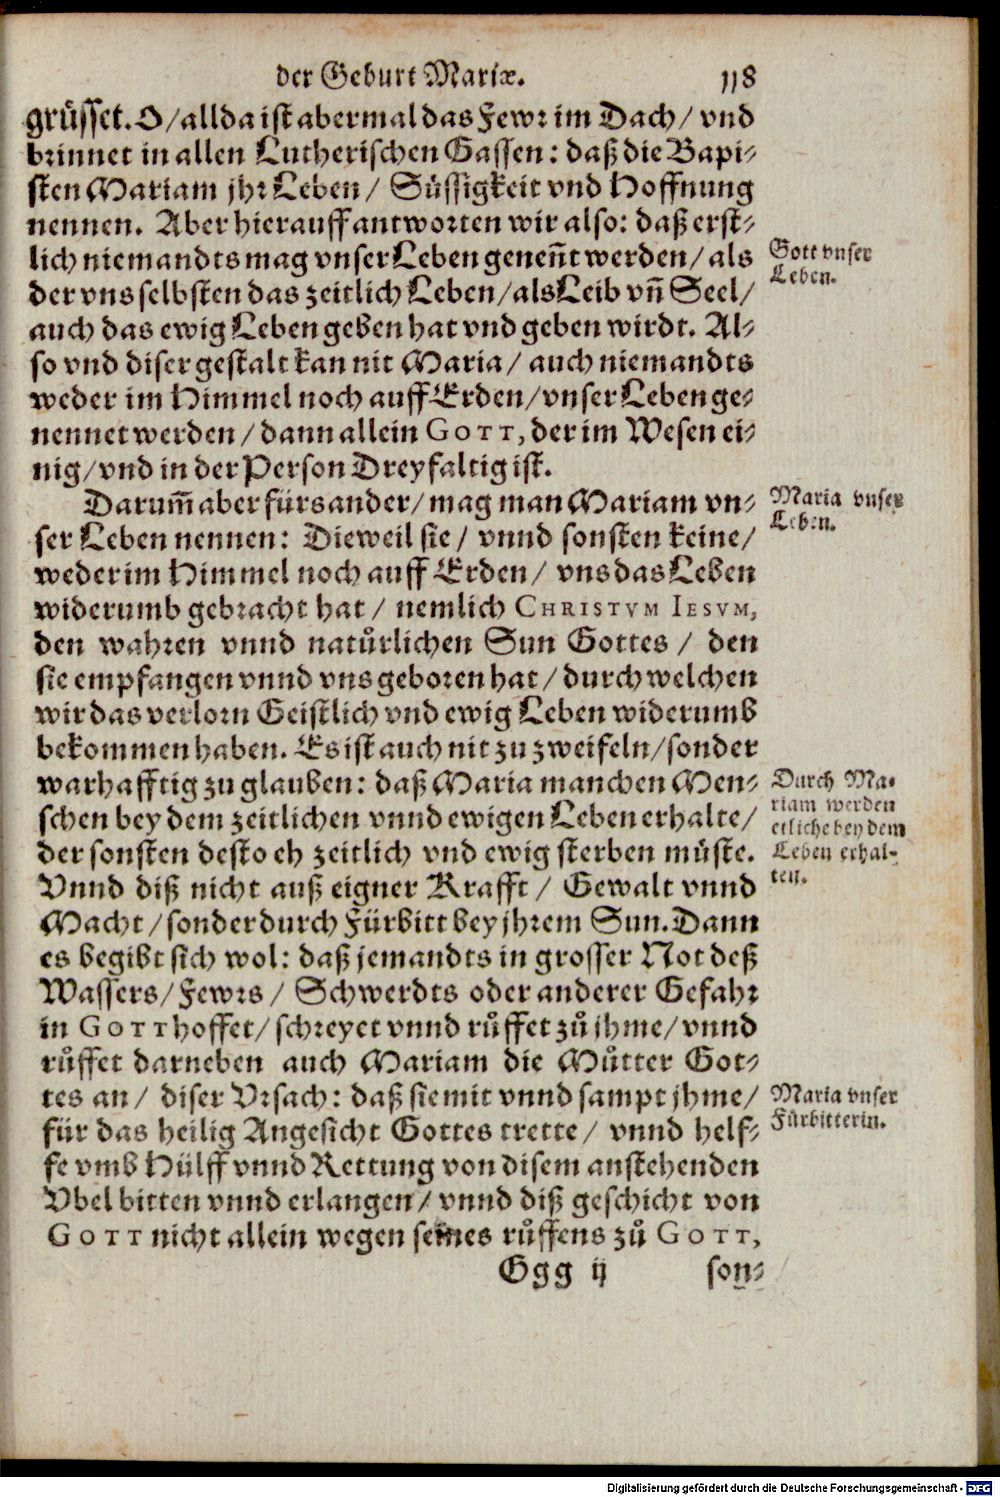 der Geburt Mariæ. 118
grüsset. O/allda ist abermal das Fewr im Dach/ vnd
brinnet in allen Lutherischen Gassen: daß die Bapi-
sten Mariam jhr Leben/ Süssigkeit vnd Hoffnung
nennen. Aber hierauff antworten wir also: daß erst-
lich niemandts mag vnser Leben geneñt werden/ als
Gott vnser
Leben.
der vns selbsten das zeitlich Leben/als Leib vñ Seel/
auch das ewig Leben geben hat vnd geben wirdt. Al-
so vnd diser gestalt kan nit Maria/ auch niemandts
weder im Himmel noch auff Erden/vnser Leben ge-
nennet werden/ dann allein GOTT, der im Wesen ei-
nig/vnd in der Person Dreyfaltig ist.
Darum̃ aber fürs ander/ mag man Mariam vn-
Maria vnser
Leben.
ser Leben nennen: Dieweil sie/ vnnd sonsten keine/
weder im Himmel noch auff Erden/ vns das Leben
widerumb gebracht hat/ nemlich CHRISTVM IESVM,
den wahren vnnd natůrlichen Sun Gottes/ den
sie empfangen vnnd vns geboren hat/ durch welchen
wir das verlorn Geistlich vnd ewig Leben widerumb
bekommen haben. Es ist auch nit zu zweifeln/sonder
warhafftig zu glauben: daß Maria manchen Men-
Durch Ma-
riam werden
etliche bey dem
Leben erhal-
ten.
schen bey dem zeitlichen vnnd ewigen Leben erhalte/
der sonsten desto eh zeitlich vnd ewig sterben müste.
Vnnd diß nicht auß eigner Krafft/ Gewalt vnnd
Macht/sonder durch Fürbitt bey jhrem Sun. Dann
es begibt sich wol: daß jemandts in grosser Not deß
Wassers/Fewrs/ Schwerdts oder anderer Gefahr
in GOTT hoffet/ schreyet vnnd růffet zů jhme/ vnnd
růffet darneben auch Mariam die Můtter Got-
tes an/ diser Vrsach: daß sie mit vnnd sampt jhme/
Maria vnser
Fürbitterin.
für das heilig Angesicht Gottes trette/ vnnd helf-
fe vmb Hülff vnnd Rettung von disem anstehenden
Vbel bitten vnnd erlangen/ vnnd diß geschicht von
GOTT nicht allein wegen seines růffens zů GOTT,
Ggg ij son-
Digitalisierung gefördert durch die Deutsche Forschungsgemeinschaft - DFG